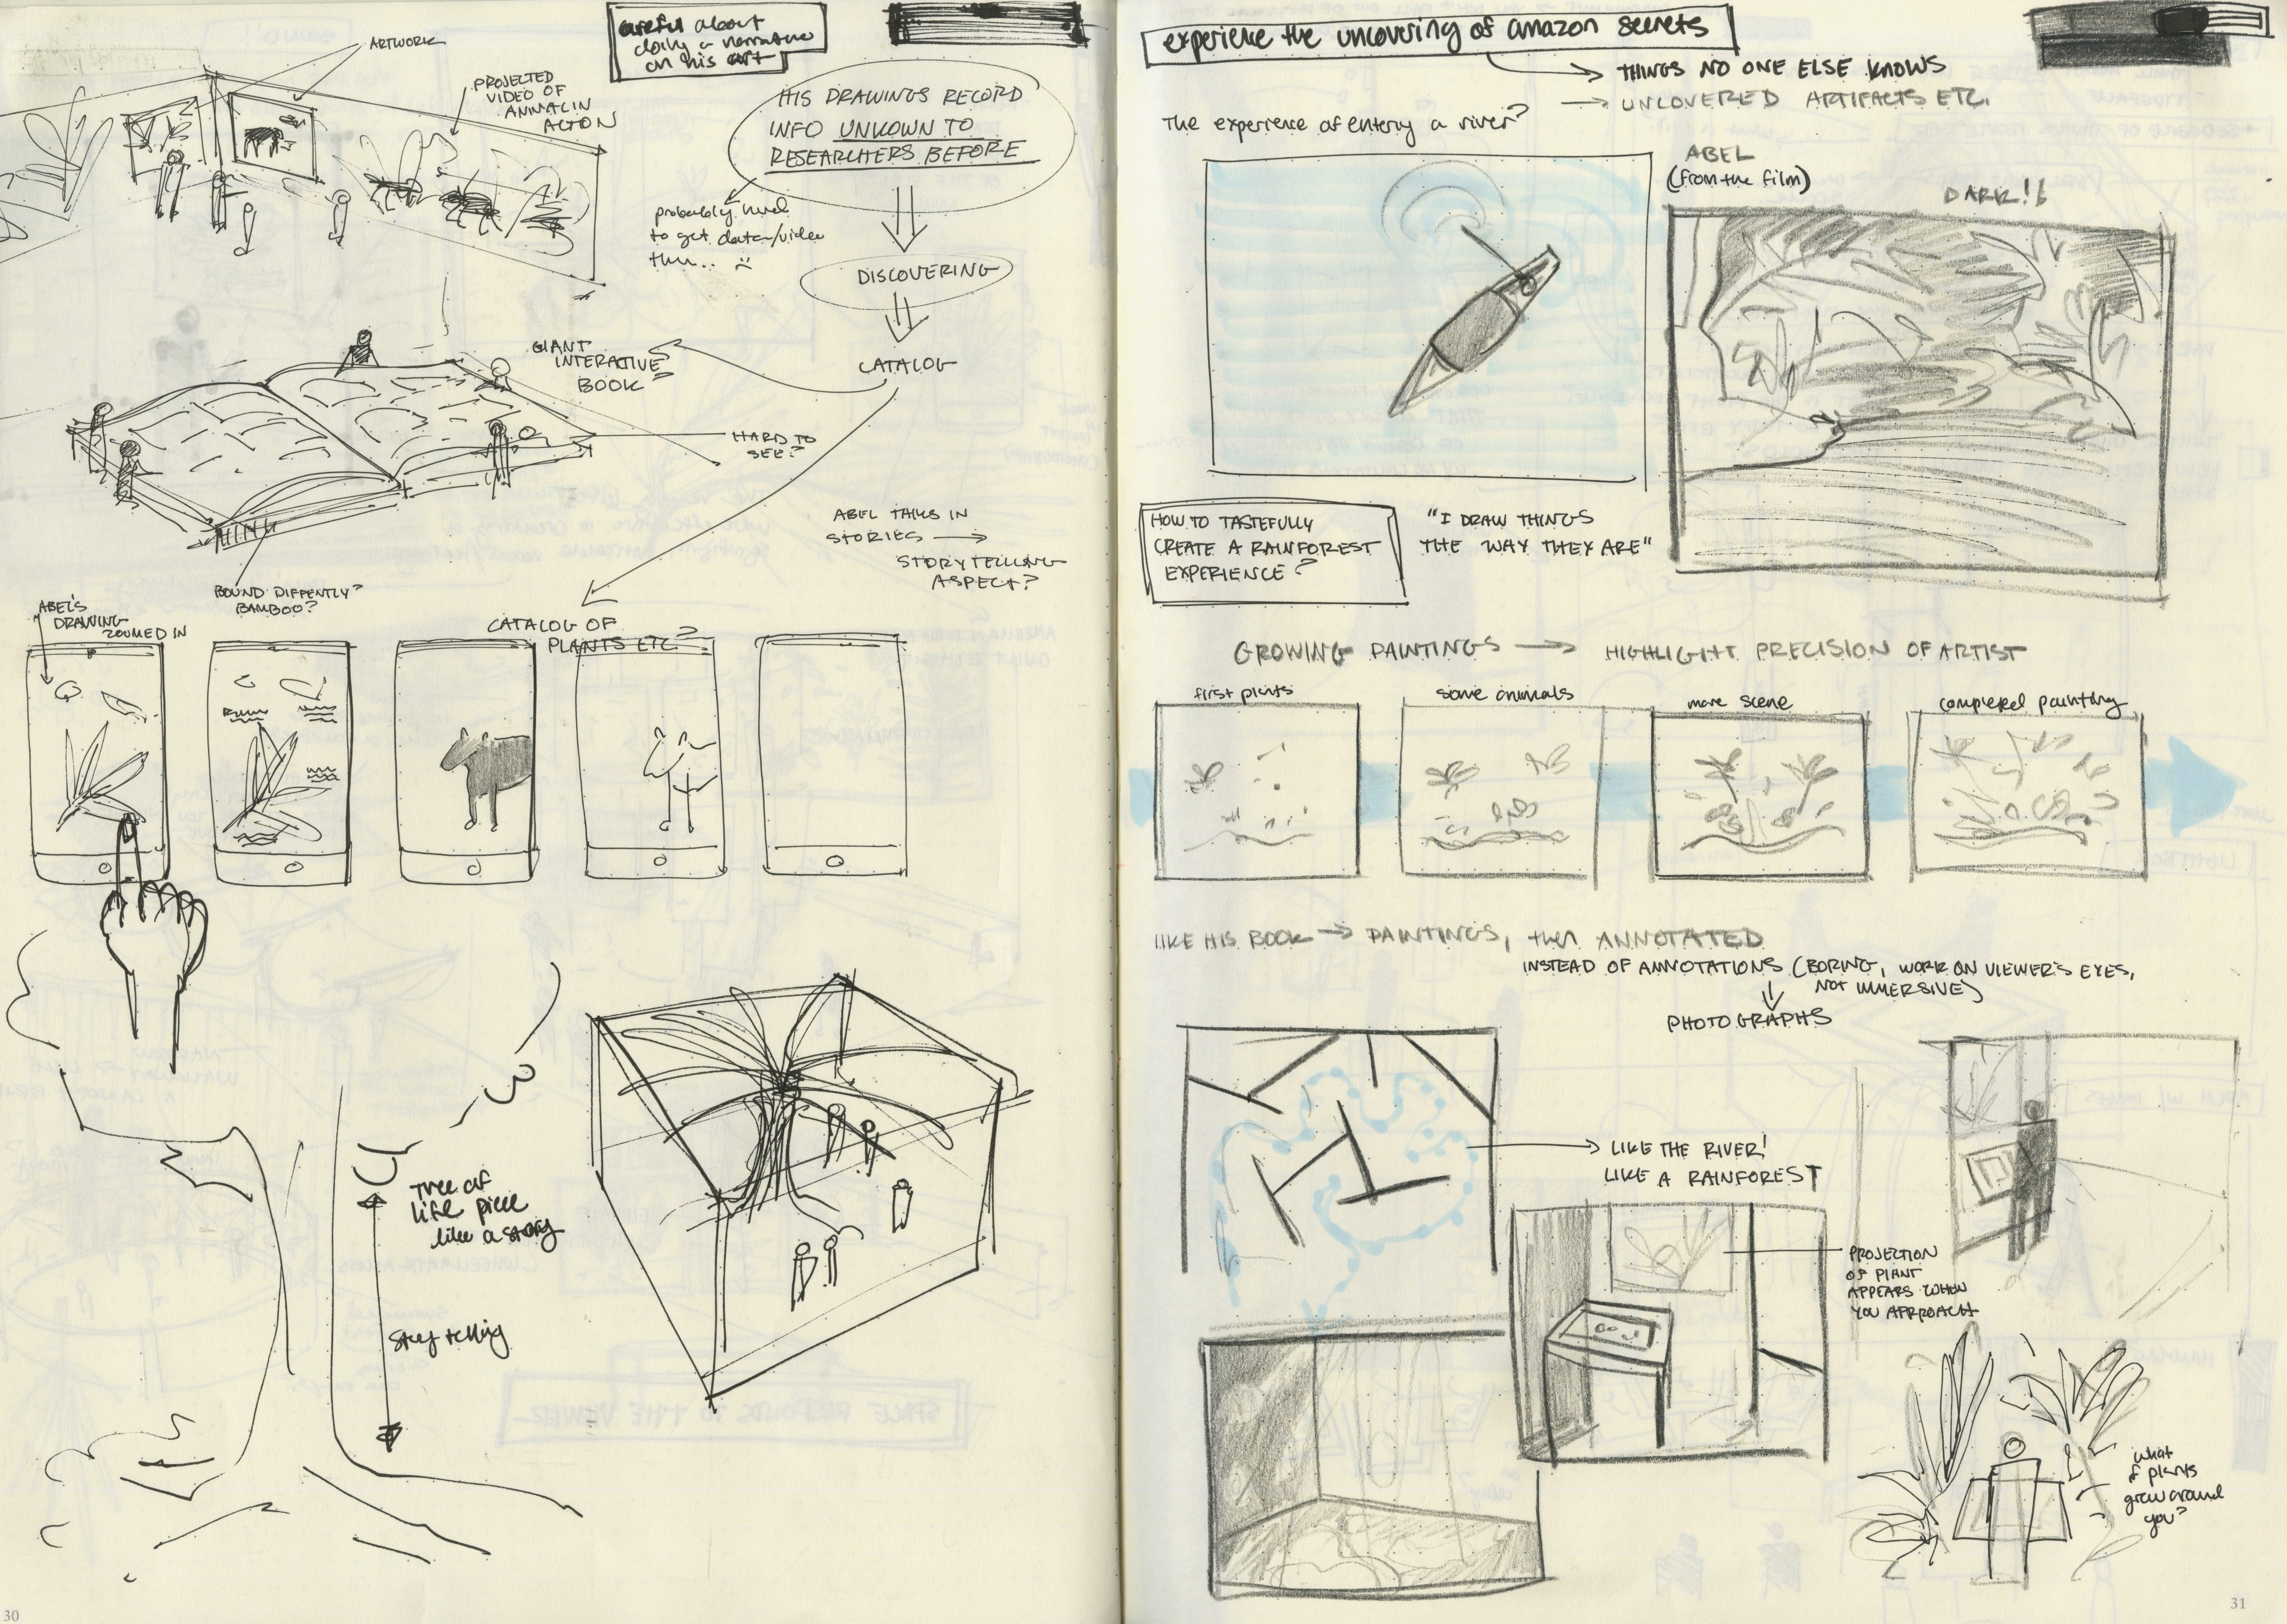 ARTWORK
careful about
doing a narrative
on his art
PROJECTED
VIDEO OF
ANIMAL IN
ACTION
HIS DRAWINGS RECORD
INFO UNKOWN TO
RESEARCHERS BEFORE
probably need
to get data/video
then.. :(
DISCOVERING
CATALOG
GIANT
INTERATIVE
BOOK?
HARD TO
SEE?
ABEL THINKS IN
STORIES →
STORYTELLING
ASPECT?
BOUND DIFFENTLY?
BAMBOO?
ABEL'S
DRAWING
ZOOMED IN
CATALOG OF
PLANTS ETC?
Tree of
life piece
like a story
Story telling
30
experience the uncovering of amazon secrets
→ THINGS NO ONE ELSE KNOWS
→ UNCOVERED ARTIFACTS ETC.
The experience of entering a river?
ABEL
(from the film)
DARK!!
HOW TO TASTEFULLY
CREATE A RAINFOREST
EXPERIENCE?
"I DRAW THINGS
THE WAY THEY ARE"
GROWING PAINTINGS → HIGHLIGHT PRECISION OF ARTIST
first plants
some animals
more scene
completed painting
LIKE HIS BOOK → PAINTINGS, then ANNOTATED
INSTEAD OF ANNOTATIONS (BORING, WORK ON VIEWER'S EYES,
NOT IMMERSIVE)
PHOTOGRAPHS
→ LIKE THE RIVER!
LIKE A RAINFOREST
PROJECTION
OF PLANT
APPEARS WHEN
YOU APPROACH
what
if plants
grew around
you?
31